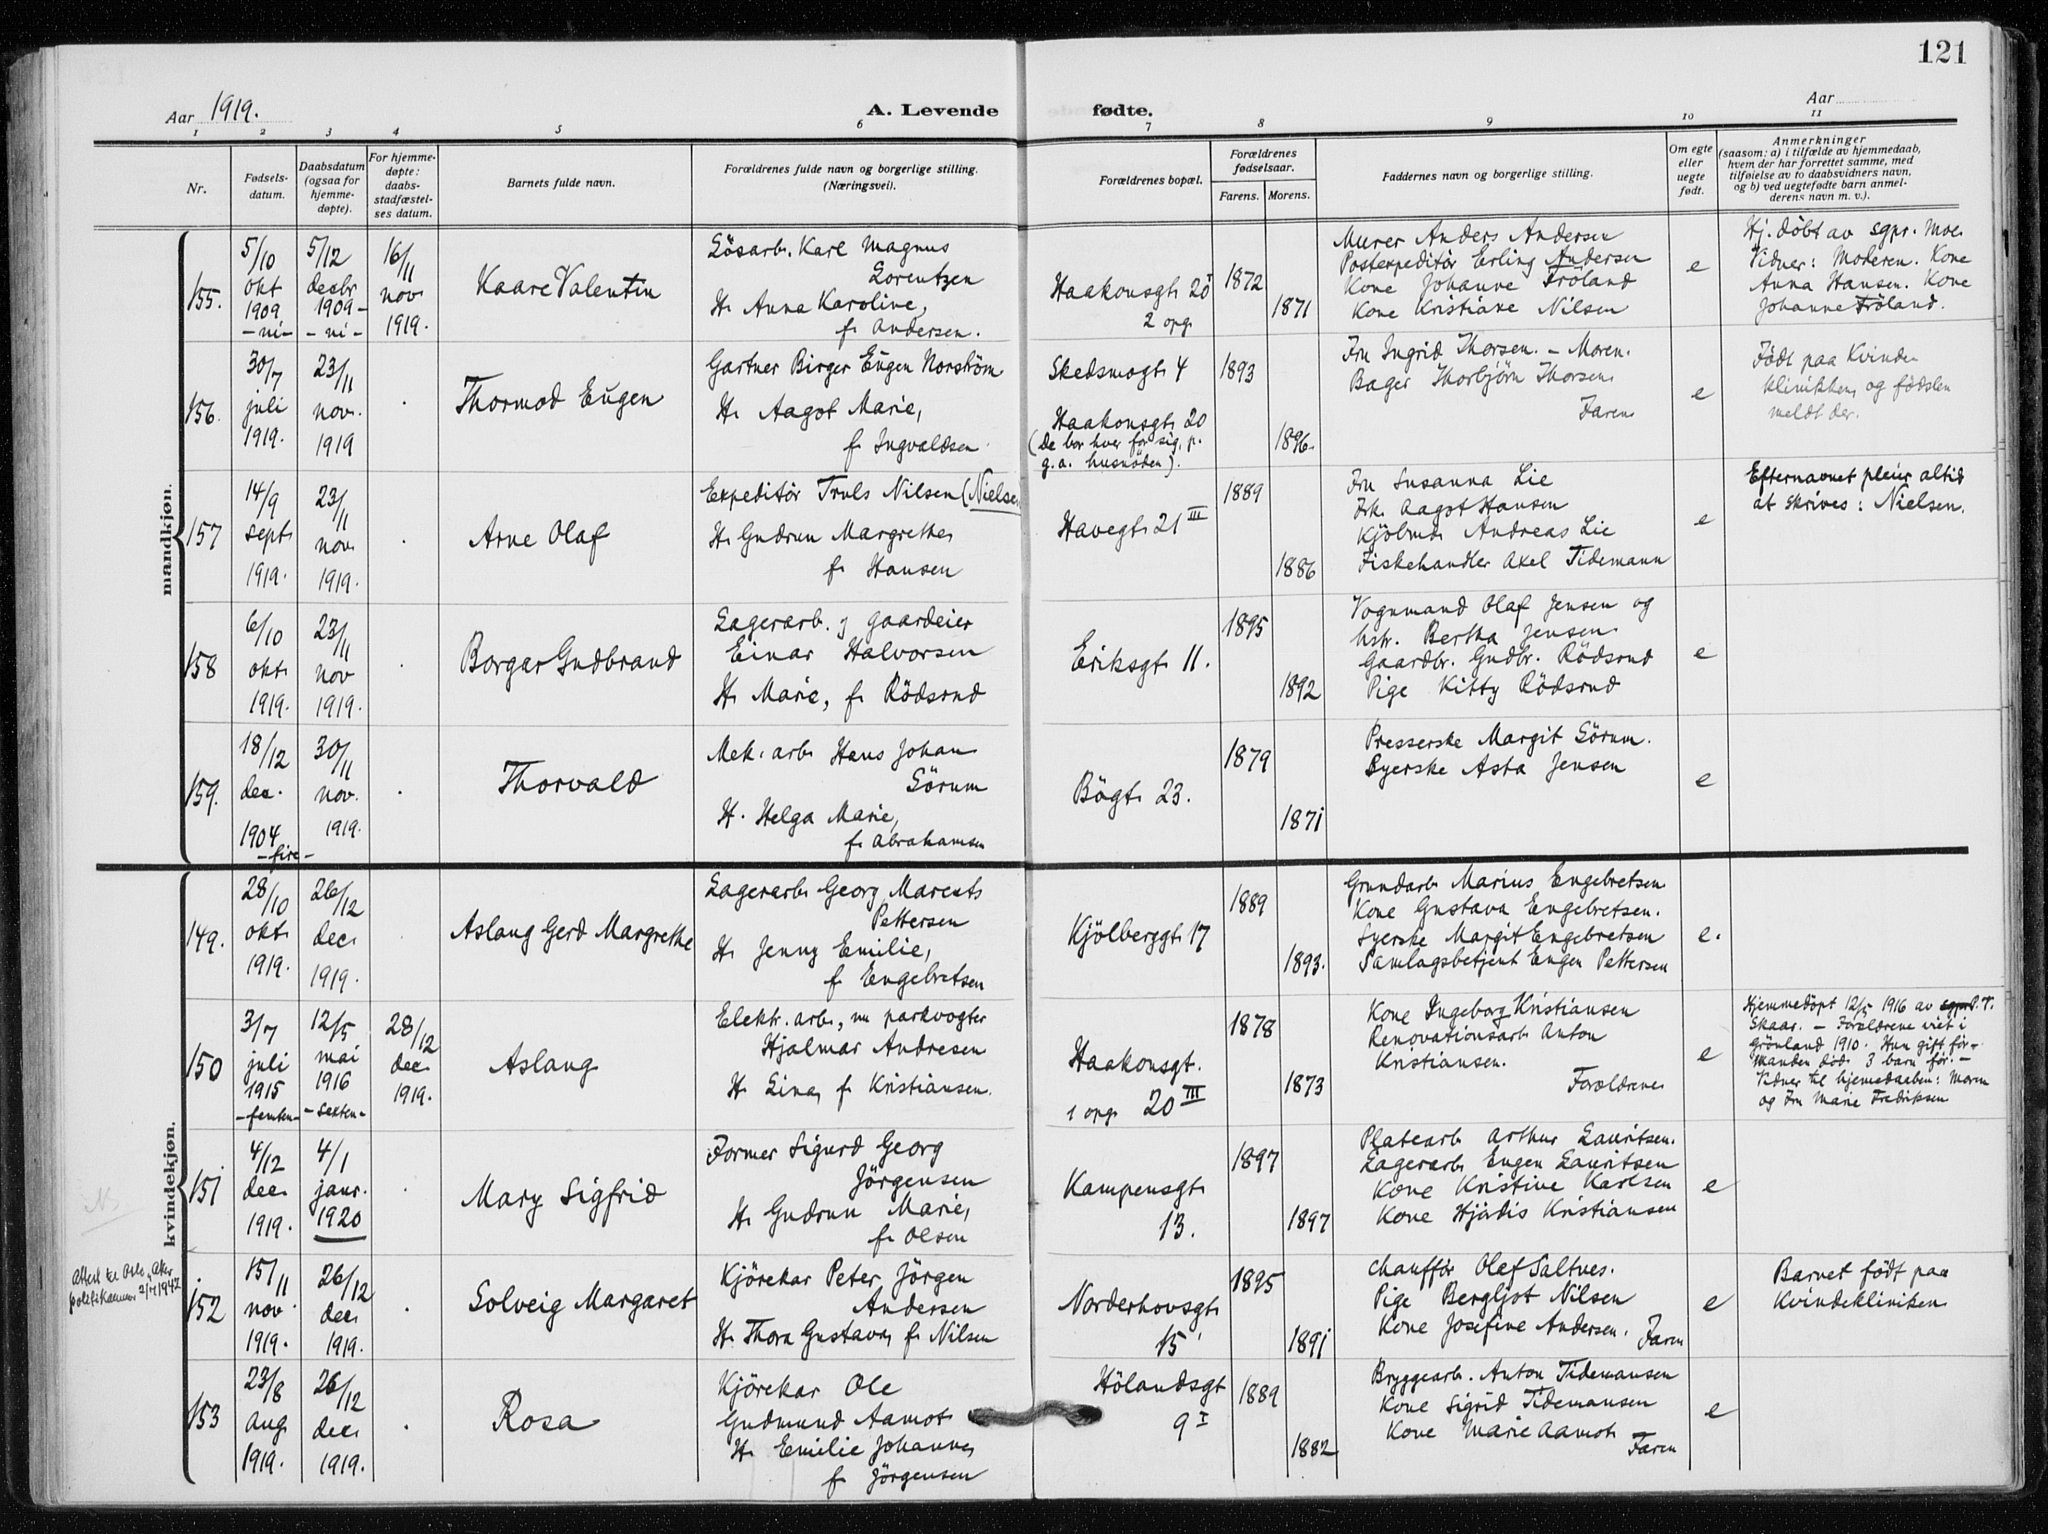 121
Aar 1919.
A. Levende fødte.
Aar
1 2 3 4 5 6 7 8 9 10 11
Nr.
Fødsels-
datum.
Daabsdatum
(ogsaa for
hjemme-
døpte).
For hjemme-
døpte:
daabs-
stadfæstel-
ses datum.
Barnets fulde navn.
Forældrenes fulde navn og borgerlige stilling.
(Næringsvei).
Forældrenes bopæl.
Forældrenes
fødselsaar.
Farens. Morens.
Faddernes navn og borgerlige stilling.
Om egte
eller
uegte
født.
Anmerkninger
(saasom: a) i tilfælde av hjemmedaab,
hvem der har forrettet samme, med
tilføielse av to daabsvidners navn,
og b) ved uegtefødte barn anmel-
derens navn m. v.).
mandkjøn.
155.
5/10
okt
1909
-ni-
5/12
decbr
1909-
-ni-
16/11
nov
1919.
Kaare Valentin
Løsarb. Karl Magnus
Lorentzen
H. Anna Karoline,
f. Andersen.
Haakonsgt. 20 I
2 opg.
1872
1871
Murer Anders Andersen
Postexpeditör Erling Andersen
Kone Johanne Fröland
Kone Kristiane Nilsen
e
Hj. döbt av sgpr. Moe.
Vidner: Moderen. Kone
Anna Hansen. Kone
Johanne Fröland.
156.
30/7
juli
1919.
23/11
nov.
1919
Thormod Eugen
Gartner Birger Eugen Norström
H. Aagot Marie,
f. Ingvaldsen.
Skedsmogt. 4
Haakonsgt. 20
(De bor hver for sig, p.
g. a. husnöden).
1893
1896.
Fru Ingrid Thorsen. - Moren.
Bager Thorbjörn Thorsen.
Faren.
e
Födt paa Kvinde-
klinikken, og födslen
meldt der.
157
14/9
sept.
1919.
23/11
nov.
1919.
Arne Olaf
Expeditör Truls Nilsen (Nielsen
H. Gudrun Margrethe
f. Hansen
Havegt. 21 III
1889
1886
Fru Susanna Lie
Frk. Aagot Hansen
Kjölmd. Andreas Lie
Fiskehandler Axel Tidemann
e
Efternavnet pleier altid
at skrives: Nielsen.
158
6/10
okt.
1919.
23/11
nov
1919.
Borgar Gudbrand
Lagerarb. og gaardeier
Einar Halvorsen
H. Marie, f. Rödsrud
Eriksgt. 11.
1895
1892
Vognmand Olaf Jensen og
hstr. Bertha Jensen
Gaardbr. Gudbr. Rödsrud
Pige Kitty Rödsrud
e
159.
18/12
dec.
1904
-fire-
30/11
nov.
1919.
Thorvald
Mek. arb. Hans Johan
Sörum
H. Helga Marie,
f. Abrahamsen
Bögt. 23.
1879
1871
Presserske Margit Sörum.
Syerske Asta Jensen
e
kvindekjøn.
149.
28/10
okt.
1919.
26/12
dec.
1919.
Aslaug Gerd Margrethe
Lagerarb. Georg Marents
Pettersen
H. Jenny Emilie,
f. Engebretsen
Kjölberggt. 17
1889
1893.
Grundarb. Marius Engebretsen
Kone Gustava Engebretsen.
Syerske Margit Engebretsen
Samlagsbetjent Eugen Pettersen
e.
150
3/7
juli
1915
-femten-
12/5
mai
1916
-sexten-
28/12
dec.
1919.
Aslaug
Elektr. arb., nu parkvogter
Hjalmar Andresen
H. Lina, f. Kristiansen.
Haakonsgt.
1 opg. 20 III
1878
1873
Kone Ingeborg Kristiansen
Renovationsarb. Anton
Kristiansen.
Forældrene
e
Hjemmedöpt 12/5 1916 av sgpr. P. T.
Skaar. - Forældrene viet i
Grönland 1910. Hun gift för -
Manden död. 3 barn för. -
Vidner til hjemmedaaben: Moren
og Fru Marie Fredriksen
151
4/12
dec.
1919.
4/1
janr.
1920
Mary Sigfrid
Former Sigurd Georg
Jörgensen
H. Gudrun Marie,
f. Olsen
Kampensgt.
13.
1897
1897
Platearb. Arthur Lauritsen.
Lagerarb. Eugen Lauritsen
Kone Kristine Karlsen
Kone Hjördis Kristiansen
e
Attest til Oslo, Aker
politikammer 2/7 1942
152
15/11
nov.
1919.
26/12
dec.
1919.
Solveig Margaret
Kjörekar Peter Jörgen
Andersen
H. Thora Gustava, f. Nilsen
Norderhovsgt.
15
1895
1891
Chaufför Olaf Saltnes.
Pige Bergljot Nilsen
Kone Josefine Andersen. Faren
e
Barnet födt paa
Kvindekliniken
153
23/8
aug.
1919.
26/12
dec.
1919.
Rosa
Kjörekar Ole
Gudmund Aamot
H. Emilie Johanne,
f. Jörgensen
Hölandsgt
9 I
1889
1882
Bryggearb. Anton Tidemansen
Kone Sigrid Tidemansen
Kone Marie Aamot.
Faren
e